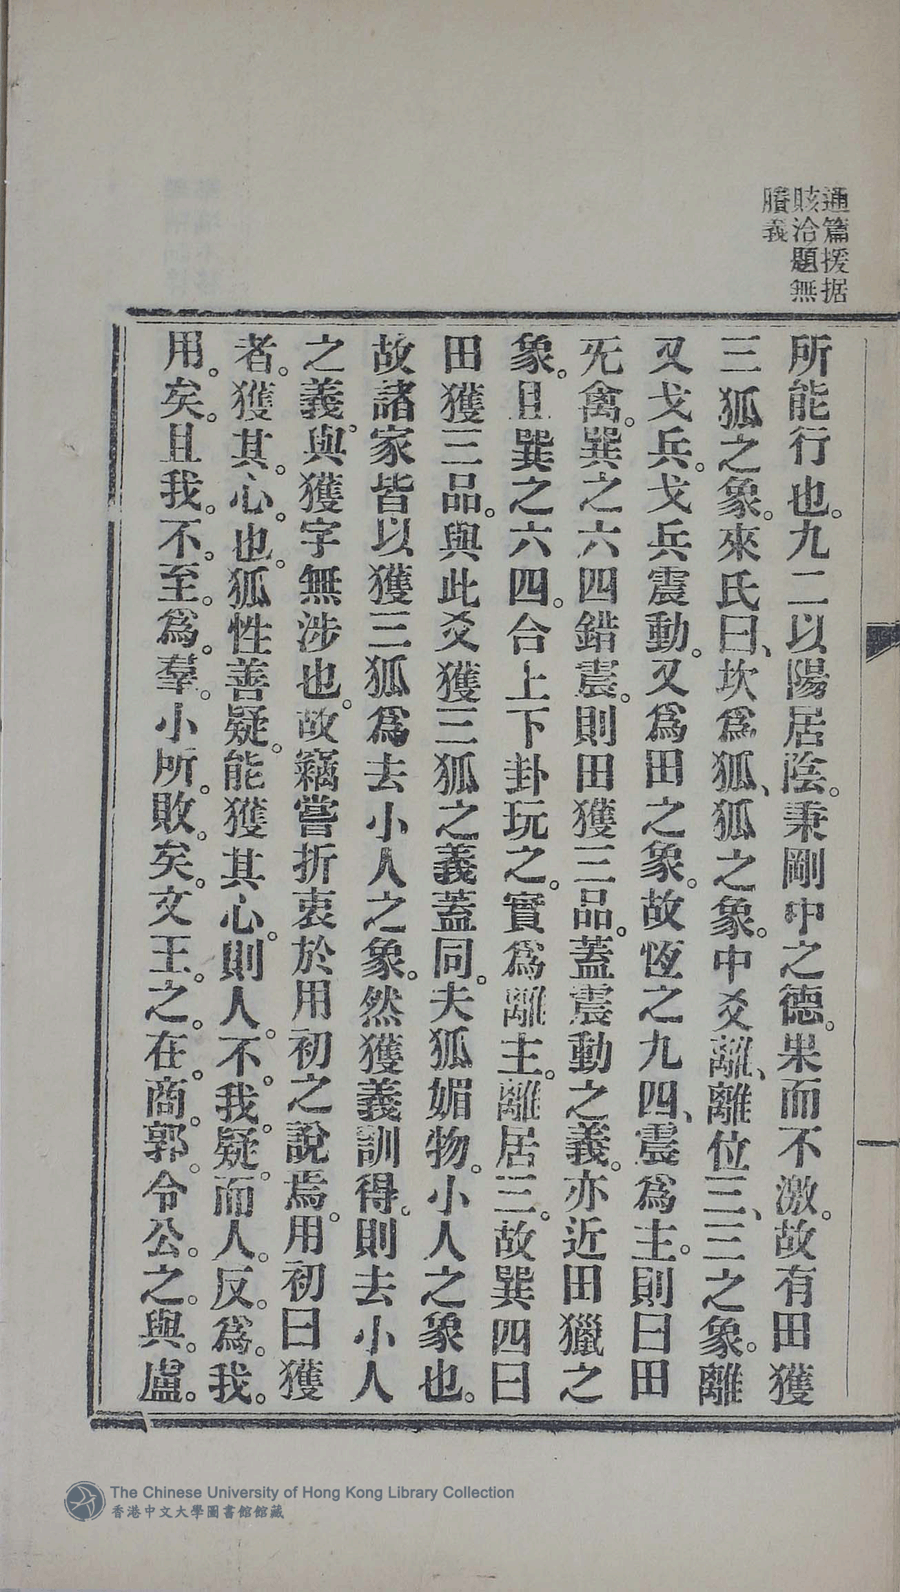 通篇援据
賅洽題無
賸義
所能行也。九二以陽居陰。秉剛中之德。果而不激。故有田獲
三狐之象。來氏曰、坎爲狐、狐之象。中爻離、離位三、三之象。離
又戈兵。戈兵震動。又爲田之象。故恆之九四、震爲主。則曰田
无禽。巽之六四錯震。則田獲三品。蓋震動之義。亦近田獵之
象。且巽之六四。合上下卦玩之。實爲離主。離居三。故巽四曰
田獲三品。與此爻獲三狐之義蓋同。夫狐媚物。小人之象也。
故諸家皆以獲三狐爲去小人之象。然獲義訓得。則去小人
之義。與獲字無涉也。故竊嘗折衷於用初之說焉。用初曰獲
者。獲其。心。也。狐性善疑。能獲其心。則人。不。我。疑。而人。反。爲。我。
用。矣。且我。不。至。爲。羣。小所。敗。矣。文王。之。在。商。郭。令公。之。與。盧。
The Chinese University of Hong Kong Library Collection
香港中文大學圖書館館藏